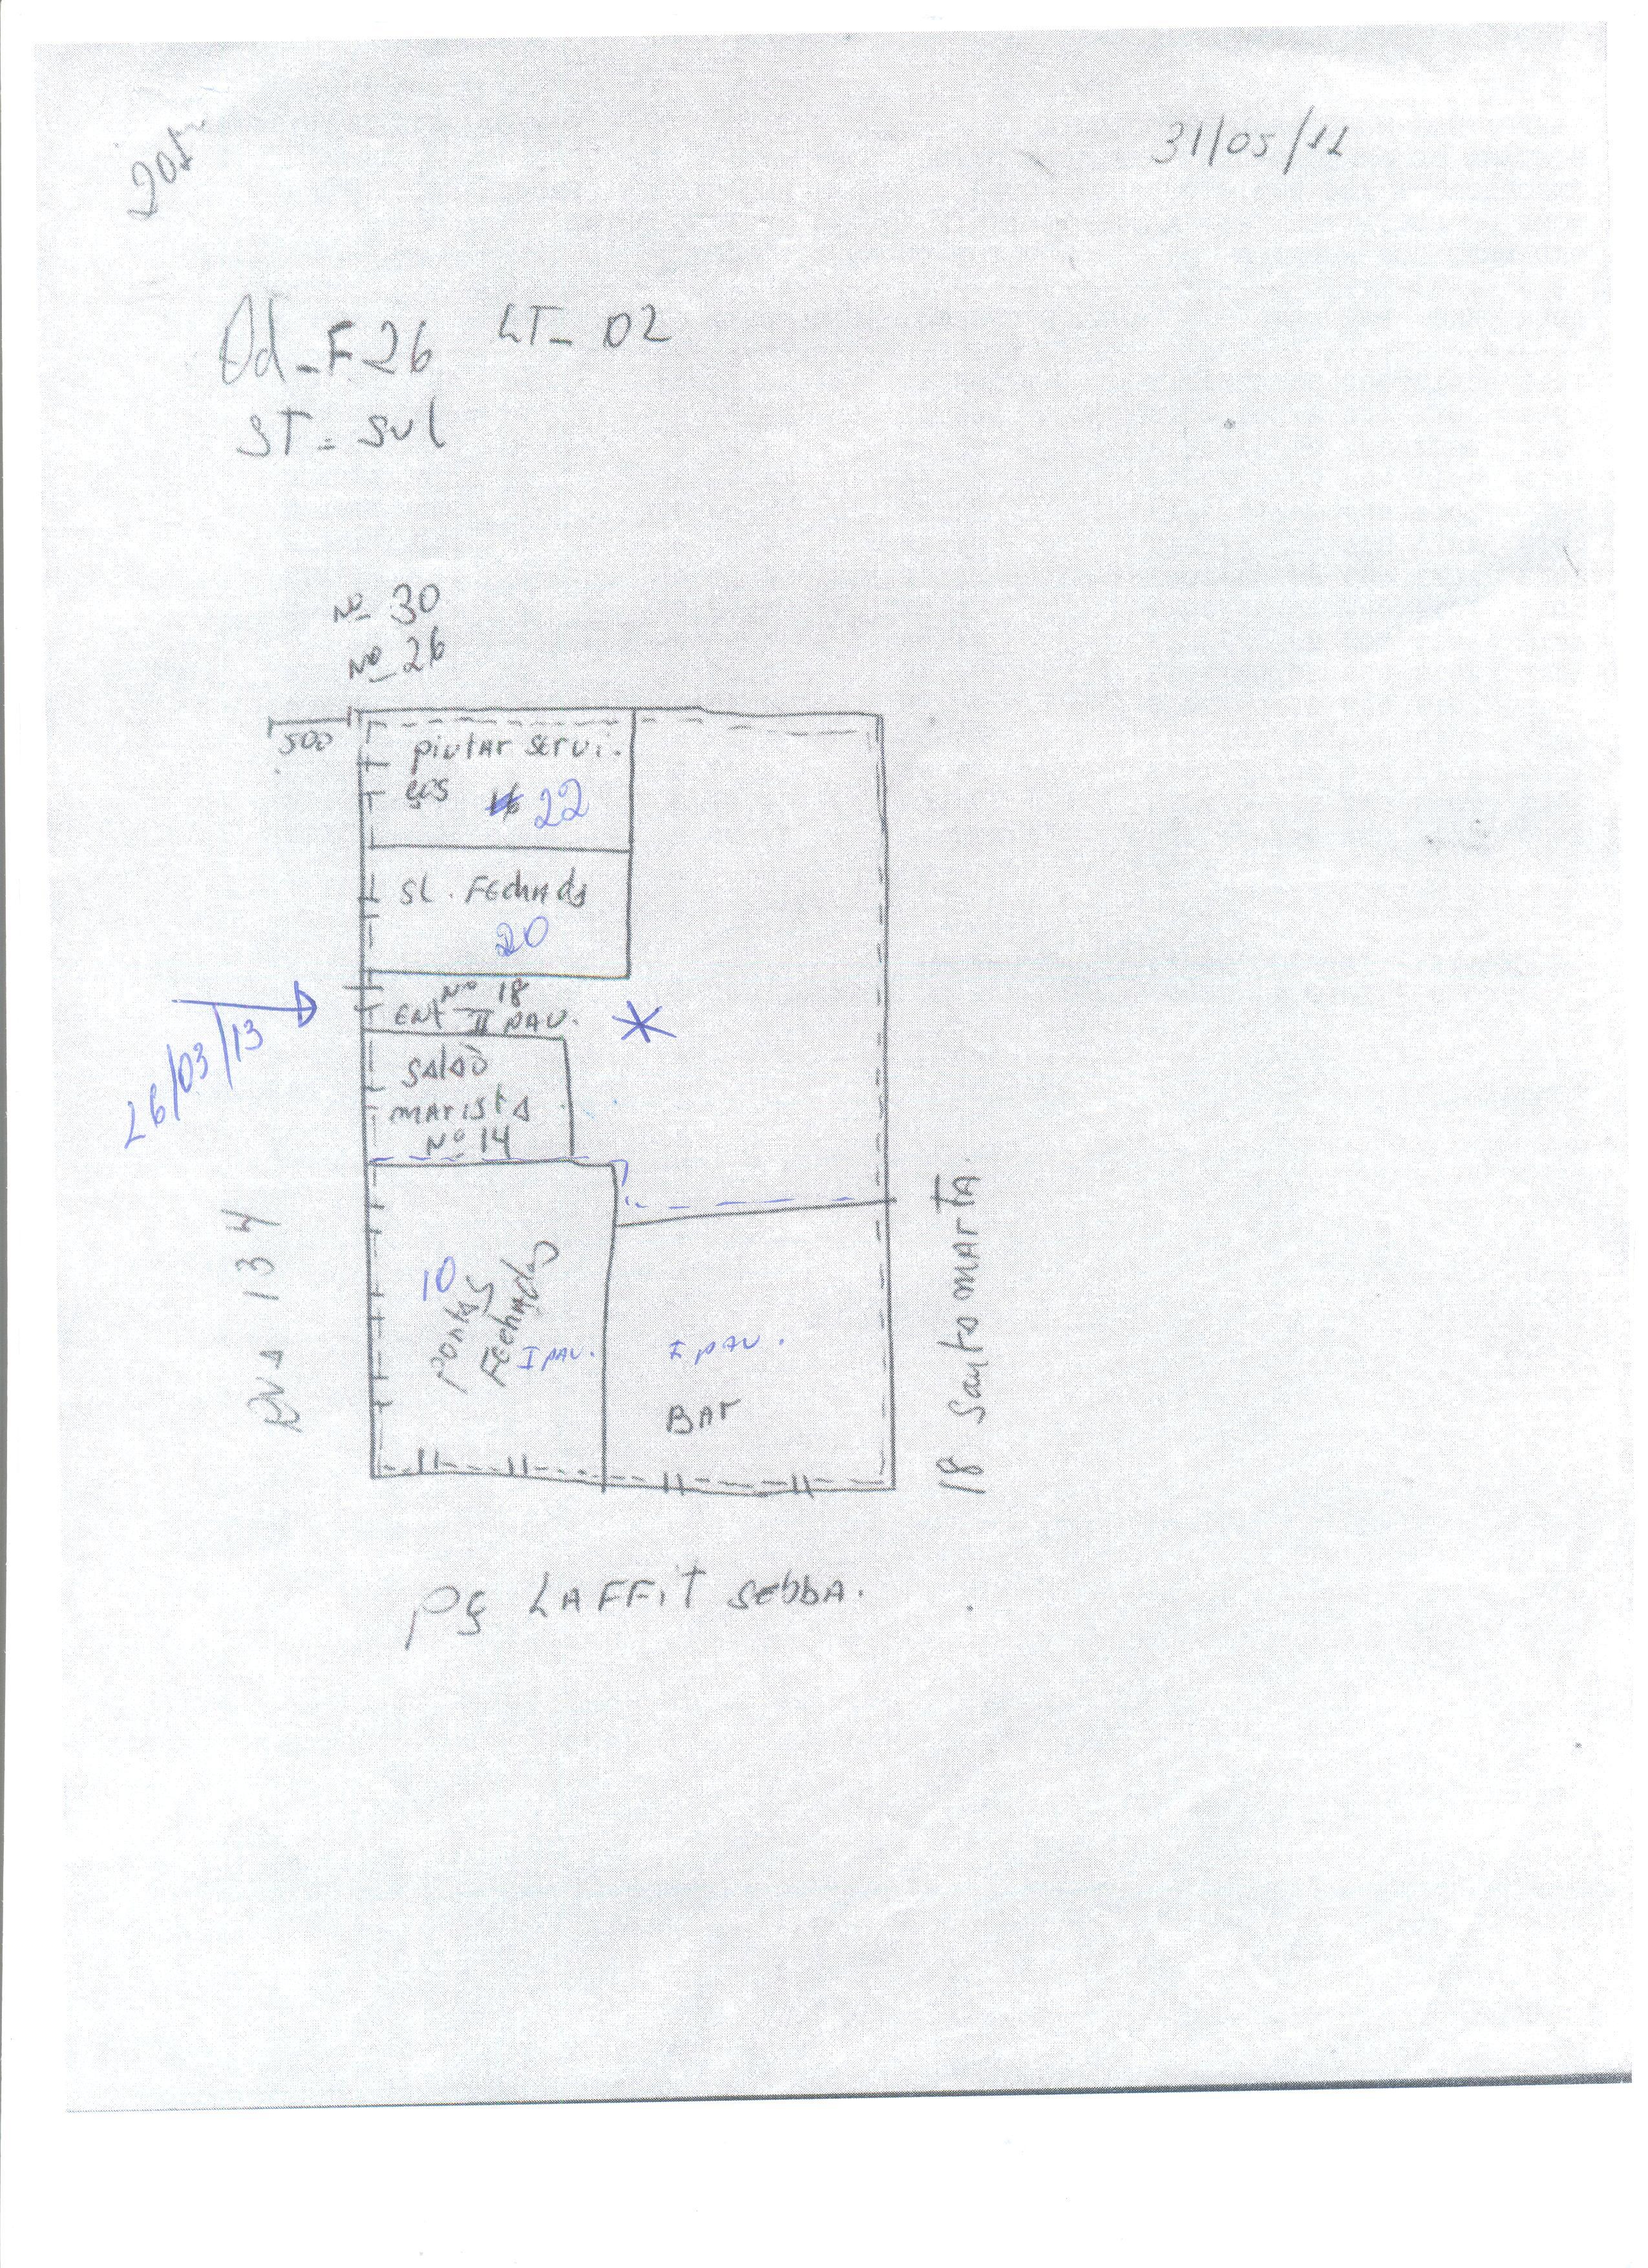 31/05/11
Qd_F26 LT_ 02
ST= Sul
Nº 30
Nº 26
500
pintar servi.
ços 22
SL. FEchAdA
20
Nº 18
ENt II PAV.
26/03/13
SALÃO
MAristA
Nº 14
10
portas
FEchadas
I PAV.
I PAV.
BAr
RuA 134
18 Santa MArTA
pç LAFFiT SebbA.